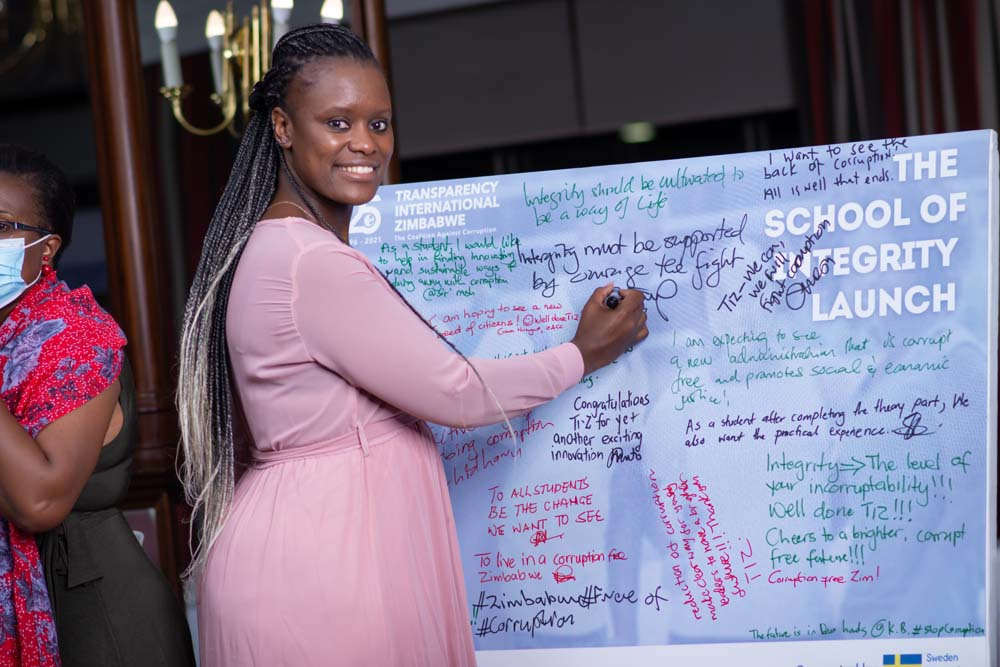 TRANSPARENCY
INTERNATIONAL
ZIMBABWE
The Coalition Against Corruption
- 2021
THE
SCHOOL OF
INTEGRITY
LAUNCH
Integrity should be cultivated to
be a way of life
I want to see the
back of Corruption.
All is well that ends.
As a student, I would like
to help in finding innovating
and sustainable ways of
away with corruption
Intergrity must be supported
by courage tee fight
TIZ - We can,
we will
Fight corruption
am hoping to see a new
eed of citizens! Well done TIZ
I am expecting to see
a new administration that is corrupt
free and promotes social & economic
justice!
Congratulations
TIZ for yet
another exciting
innovation
As a student after completing the theory part, we
also want the practical experience.
corruption
TO ALL STUDENTS
BE THE CHANGE
WE WANT TO SEE
To live in a corruption free
Zimbabwe
#Zimbabwe#Free of
#Corruption
reduction of corruption
TIZ
Integrity => The level of
your incorruptability!!!
Well done TIZ!!!
Cheers to a brighter, corrupt
free future!!!
- Corruption free Zim!
The future is in our hands @K.B. #stopCorruption
Sweden